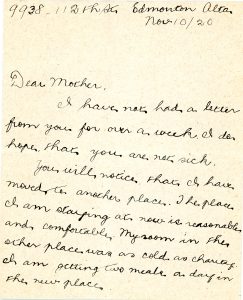 9938-112th St Edmonton Alta
Nov 10/20
Dear Mother.
I have not had a letter
from you for over a week. I do
hope that you are not sick.
You will notice that I have
moved to another place. The place
I am staying at now is reasonable
and comfortable. My room in the
other place was as cold as charity.
I am getting two meals a day in
the new place.